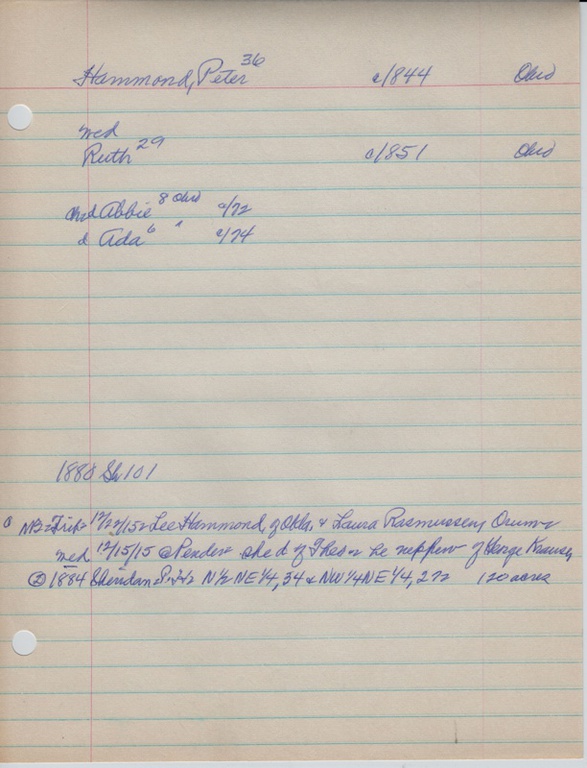 Hammond, Peter 36 c/844 Ohio
wed
Ruth 29 c/851 Ohio
chd Abbie 8 Ohio c/72
d Ada 6 " c/74
1880 Sh 101
12/22/15 Lee Hammond, of Okla. & Laura Rasmussen, Orum
wed 12/15/15 @ Pender she d of Thos he nephew of George Krause,
② 1884 Sheridan N½ NE¼, 34 & NW¼ NE¼, 27 120 acres